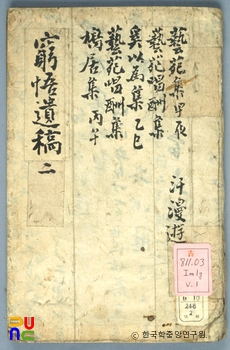 藝苑集 甲辰
汗漫遊
藝苑唱酬集
奚以爲集 乙巳
藝苑唱酬集
橋居集 丙午
窮悟遺稿 二
811.03
Im1g
v.1
246
2
한국학중앙연구원